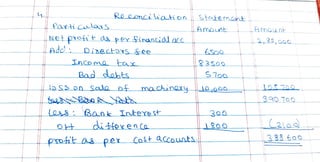 4. Reconciliation Statement
Particulars Amount Amount
Net profit as per financial acc
Add: Directors fee 6500
Income tax 83500
Bad debts 5700
loss on sale of machinery 10,000
390700
less: Bank Interest 300
OH difference 1800 (2100)
profit as per cost accounts 388600